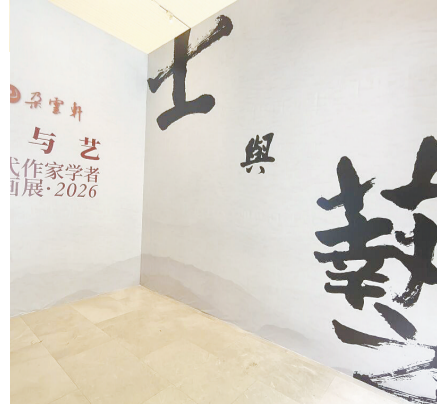 朵雲軒
与艺
代作家学者
画展·2026
士
與
藝